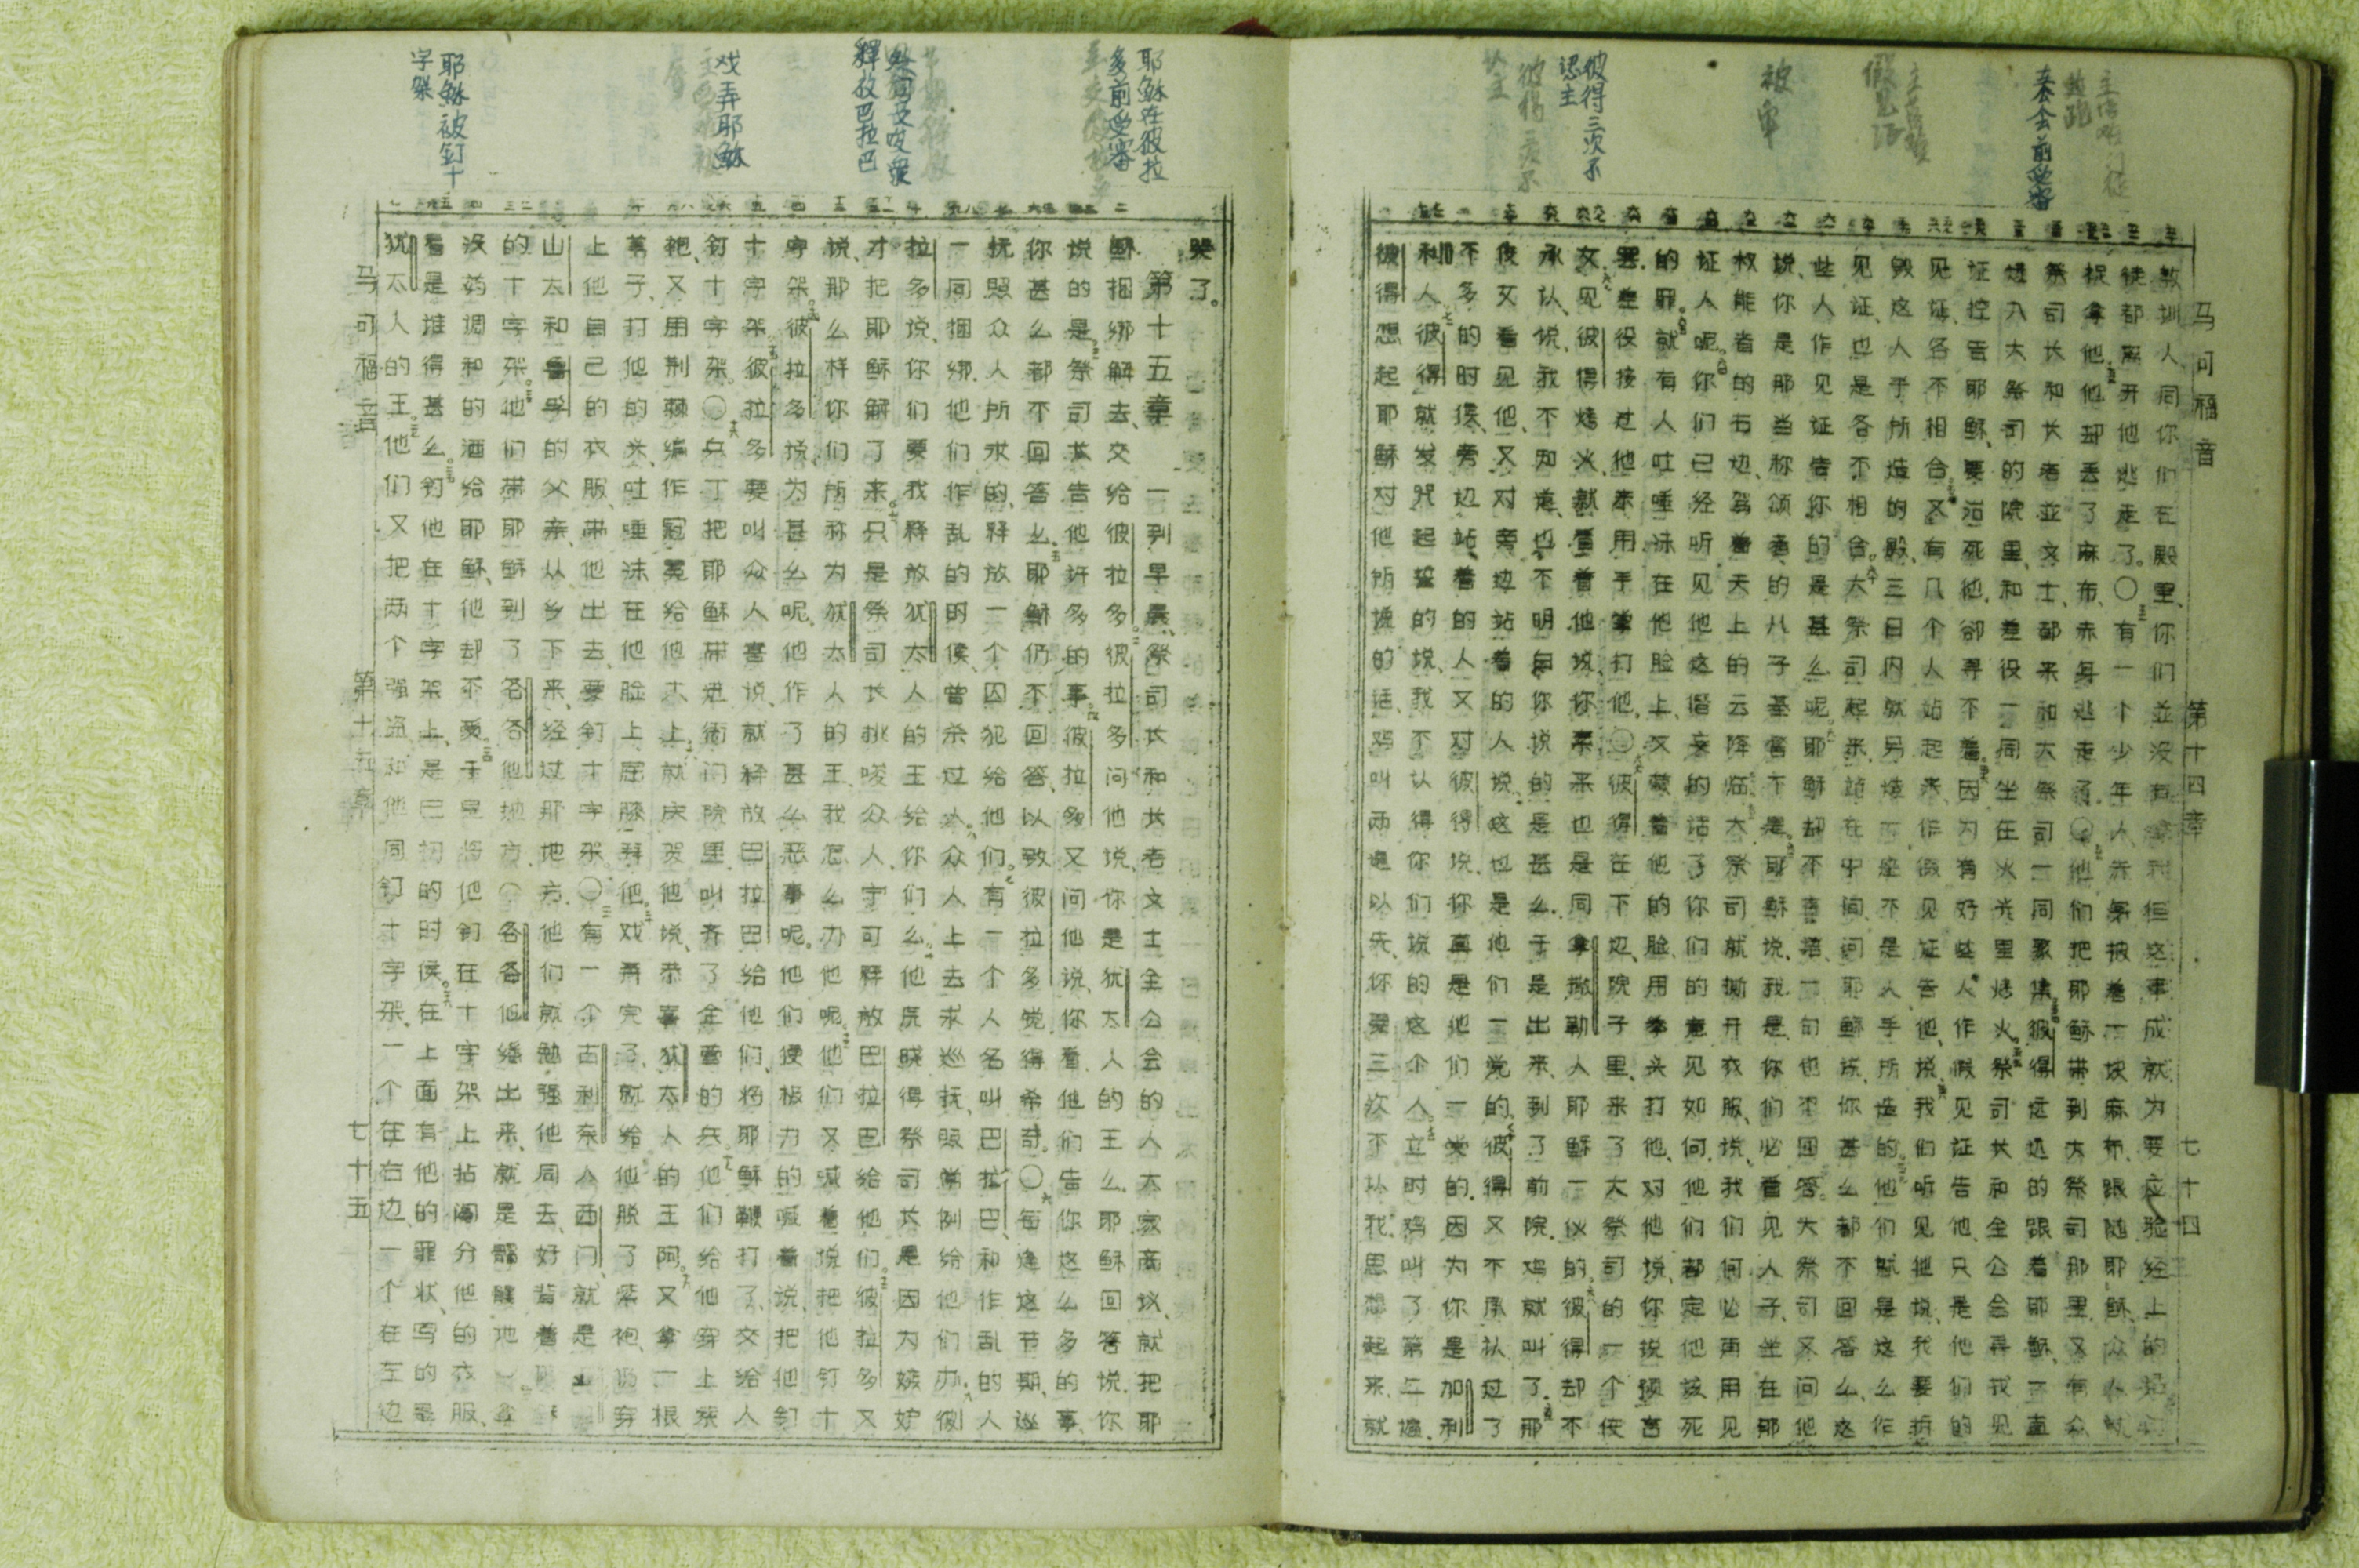 主
彼得三次不
认主
被卑
假见证
来公会前受审
马可福音 第十四章 七十四
教训人同你们在殿里、你们並没有拿我但这事成就为要应验经上的
徒都离开他逃走了。〇有一个少年人赤身披着一块麻布、跟随耶稣、众人就
捉拿他他却丢了麻布、赤身逃走了〇他们把耶稣带到大祭司那里、又有众
祭司长和长老並文士、都来和大祭司一同聚集彼得远远的跟着耶稣、一直
进入大祭司的院里和差役一同坐在火光里烤火祭司长和全公会寻找见
证控告耶稣、要治死他、卻寻不着因为有好些人作假见证告他、只是他们的
见证、各不相合又有几个人站起来作假见证告他说、我们听见他说我要拆
毁这人手所造的殿三日内就另造一座不是人手所造的他们就是这么作
见证、也是各不相合大祭司起来站在中间问耶稣说、你甚么都不回答么这
些人作见证告你的是甚么呢耶稣却不言语一句也不回答。大祭司又问他
说、你是那当称颂者的儿子基督不是耶稣说、我是你们必看见人子坐在那
权能者的右边、驾着天上的云降临大祭司就撕开衣服说、我们何必再用见
证人呢你们已经听见他这僭妄的话了你们的意见如何他们都定他该死
的罪。就有人吐唾沫在他脸上、又蒙着他的脸用拳头打他、对他说、你说预言
罢差役接过他来用手掌打他、〇彼得在下边院子里、来了大祭司的一个使
女、见彼得烤火、就看着他说、你素来也是同拿撒勒人耶稣一伙的彼得却不
承认、说、我不知道也不明白你说的是甚么、于是出来、到了前院、鸡就叫了那
使女看见他、又对旁边站着的人说、这也是他们一党的彼得又不承认过了
不多的时候、旁边站着的人又对彼得说、你真是他们一党的因为你是加利
利人彼得就发咒起誓的说、我不认得你们说的这个人立时鸡叫了第二遍、
彼得想起耶稣对他所说的话鸡叫两遍以先你要三次不认我思想起来就
耶稣在彼拉
多前受审
释放巴拉巴
戏弄耶稣
耶稣被钉十
字架
哭了。
第十五章 一到早晨、祭司长和长老文士全公会的人大家商议、就把耶
稣捆绑解去、交给彼拉多彼拉多问他说、你是犹太人的王么耶稣回答说、你
说的是祭司长告他许多的事彼拉多又问他说、你看、他们告你这么多的事、
你甚么都不回答么耶稣仍不回答、以致彼拉多觉得希奇〇每逢这节期、巡
抚照众人所求的、释放一个囚犯给他们、有一个人名叫巴拉巴、和作乱的人
一同捆绑、他们作乱的时候、曾杀过人众人上去求巡抚、照常例给他们办、彼
拉多说、你们要我释放犹太人的王给你们么他原晓得祭司长是因为嫉妒
才把耶稣解了来只是祭司长挑唆众人、宁可释放巴拉巴给他们彼拉多又
说、那么样你们所称为犹太人的王、我怎么办他呢他们又喊着说把他钉十
字架彼拉多说、为甚么呢、他作了甚么恶事呢、他们便极力的喊着说、把他钉
十字架彼拉多要叫众人喜悦就释放巴拉巴给他们、将耶稣鞭打了、交给人
钉十字架。〇兵丁把耶稣带进衙门院里叫齐了全营的兵他们给他穿上紫
袍、又用荆棘编作冠冕给他戴上、就庆贺他说、恭喜犹太人的王阿又拿一根
苇子、打他的头、吐唾沫在他脸上屈膝拜他戏弄完了、就给他脱了紫袍、仍穿
上他自己的衣服、带他出去、要钉十字架〇有一个古利奈人西门、就是
山太和鲁孚的父亲、从乡下来、经过那地方、他们就勉强他同去、好背着
的十字架他们带耶稣到了各各他地方〇各各他繙出来、就是髑髅地
没药调和的酒给耶稣、他却不受于是将他钉在十字架上拈阄分他的衣服、
看是谁得甚么钉他在十字架上、是巳初的时候在上面有他的罪状、写的是
犹太人的王他们又把两个强盗和他同钉十字架一个在右边一个在左边
马可福音 第十五章 七十五